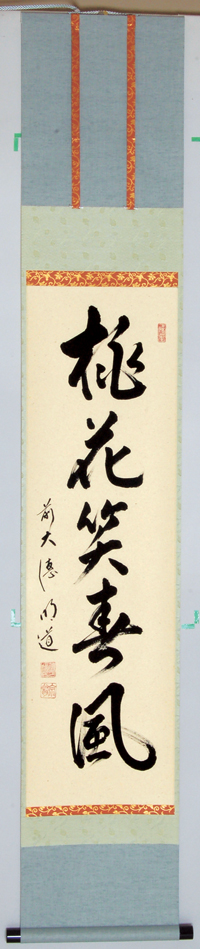 桃花笑春風
前大徳明道